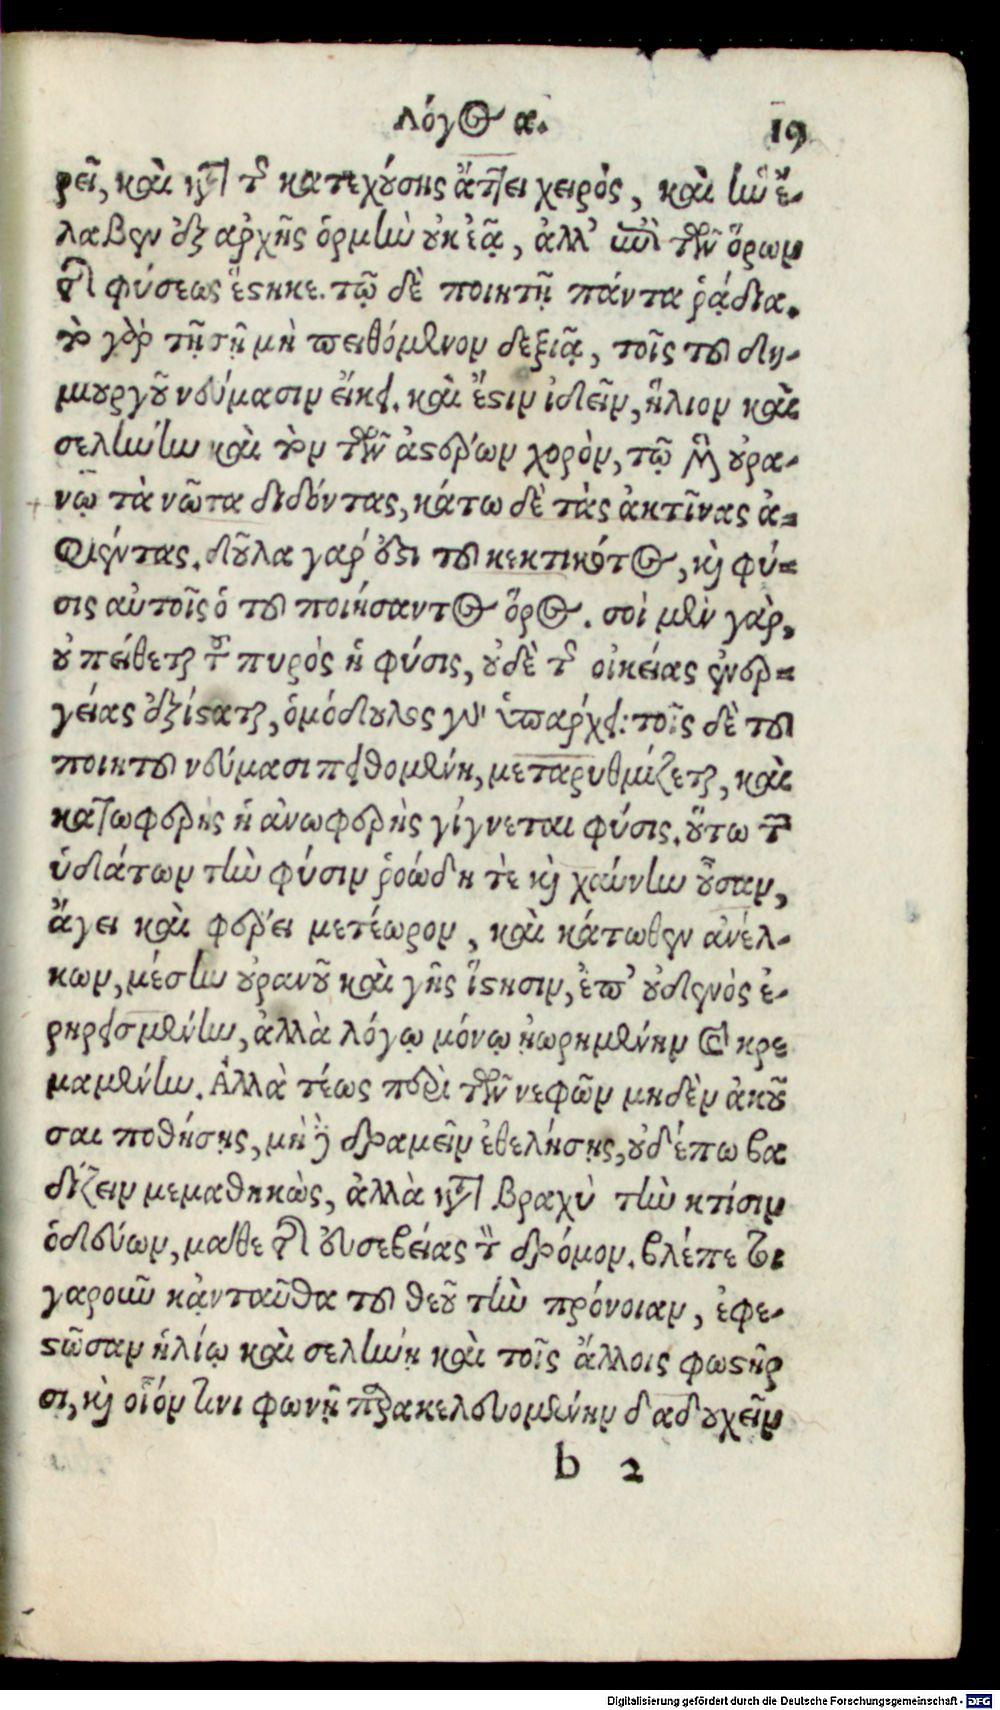 λόγος α. 19
ρεῖ, καὶ κατὰ τῆς κατεχούσης ἄττει χειρὸς, καὶ ἣν ἔ-
λαβεν ἐξ αρχῆς ὁρμὴν οὐκ ἐᾷ, ἀλλ' ἐπὶ τῶν ὅρων
τῆς φύσεως ἕστηκε. τῷ δὲ ποιητῇ πάντα ῥᾴδια.
τὸ γὸρ τῇ σῇ μὴ πειθόμενον δεξιᾷ, τοῖς τοῦ δη-
μιουργοῦ νεύμασιν εἴκει. καὶ ἔστιν ἰδεῖν, ἥλιον καὶ
σελήνην καὶ τὸν τῶν ἀστέρων χορὸν, τῷ μὲν οὐρα-
νῷ τὰ νῶτα διδόντας, κάτω δὲ τὰς ἀκτῖνας ἀ-
φιέντας. δοῦλα γαρ ἐστι τοῦ κεκτικότος, καὶ φύ-
σις αὐτοῖς ὁ τοῦ ποιήσαντος ὅρος. σοὶ μὲν γὰρ,
οὐ πείθεται τοῦ πυρὸς ἡ φύσις, οὐδὲ τῆς οἰκείας ἐνερ-
γείας ἐξίσταται, ὁμόδουλος γὰρ ὑπαρχει: τοῖς δὲ τοῦ
ποιητοῦ νεύμασι πειθομένη, μεταρυθμίζεται, καὶ
κατωφερὴς ἡ ἀνωφερὴς γίγνεται φύσις. οὕτω τὴν
ὑδάτων τὴν φύσιν ῥοώδη τὲ καὶ χαύνην οὖσαν,
ἄγει καὶ φέρει μετέωρον, καὶ κάτωθεν ανέλ-
κων, μέσην οὐρανοῦ καὶ γῆς ἵστησιν, ἐπ' οὐδενὸς ἐ-
ρηρεισμένην, ἀλλὰ λόγῳ μόνῳ ᾐωρημένην καὶ κρε-
μαμένην. Ἀλλὰ τέως περὶ τῶν νεφῶν μηδὲν ἀκοῦ
σαι ποθήσῃς, μὴ δὲ δραμεῖν ἐθελήσῃς, οὐδέπω βα
δίζειν μεμαθηκὼς, ἀλλὰ κατὰ βραχὺ τὴν κτίσιν
ὁδεύων, μαθε τῆς ευσεβείας τὸν δρόμον. βλέπε τοι
γαροῦν κᾀνταῦθα τοῦ θεοῦ τὴν πρόνοιαν, ἐφε-
στῶσαν ἡλίῳ καὶ σελήνῃ καὶ τοῖς ἄλλοις φωστῆρ
σι, καὶ οἷόν τινι φωνῇ παρακελευομένην δαδουχεῖν
b 2
Digitalisierung gefördert durch die Deutsche Forschungsgemeinschaft - DFG